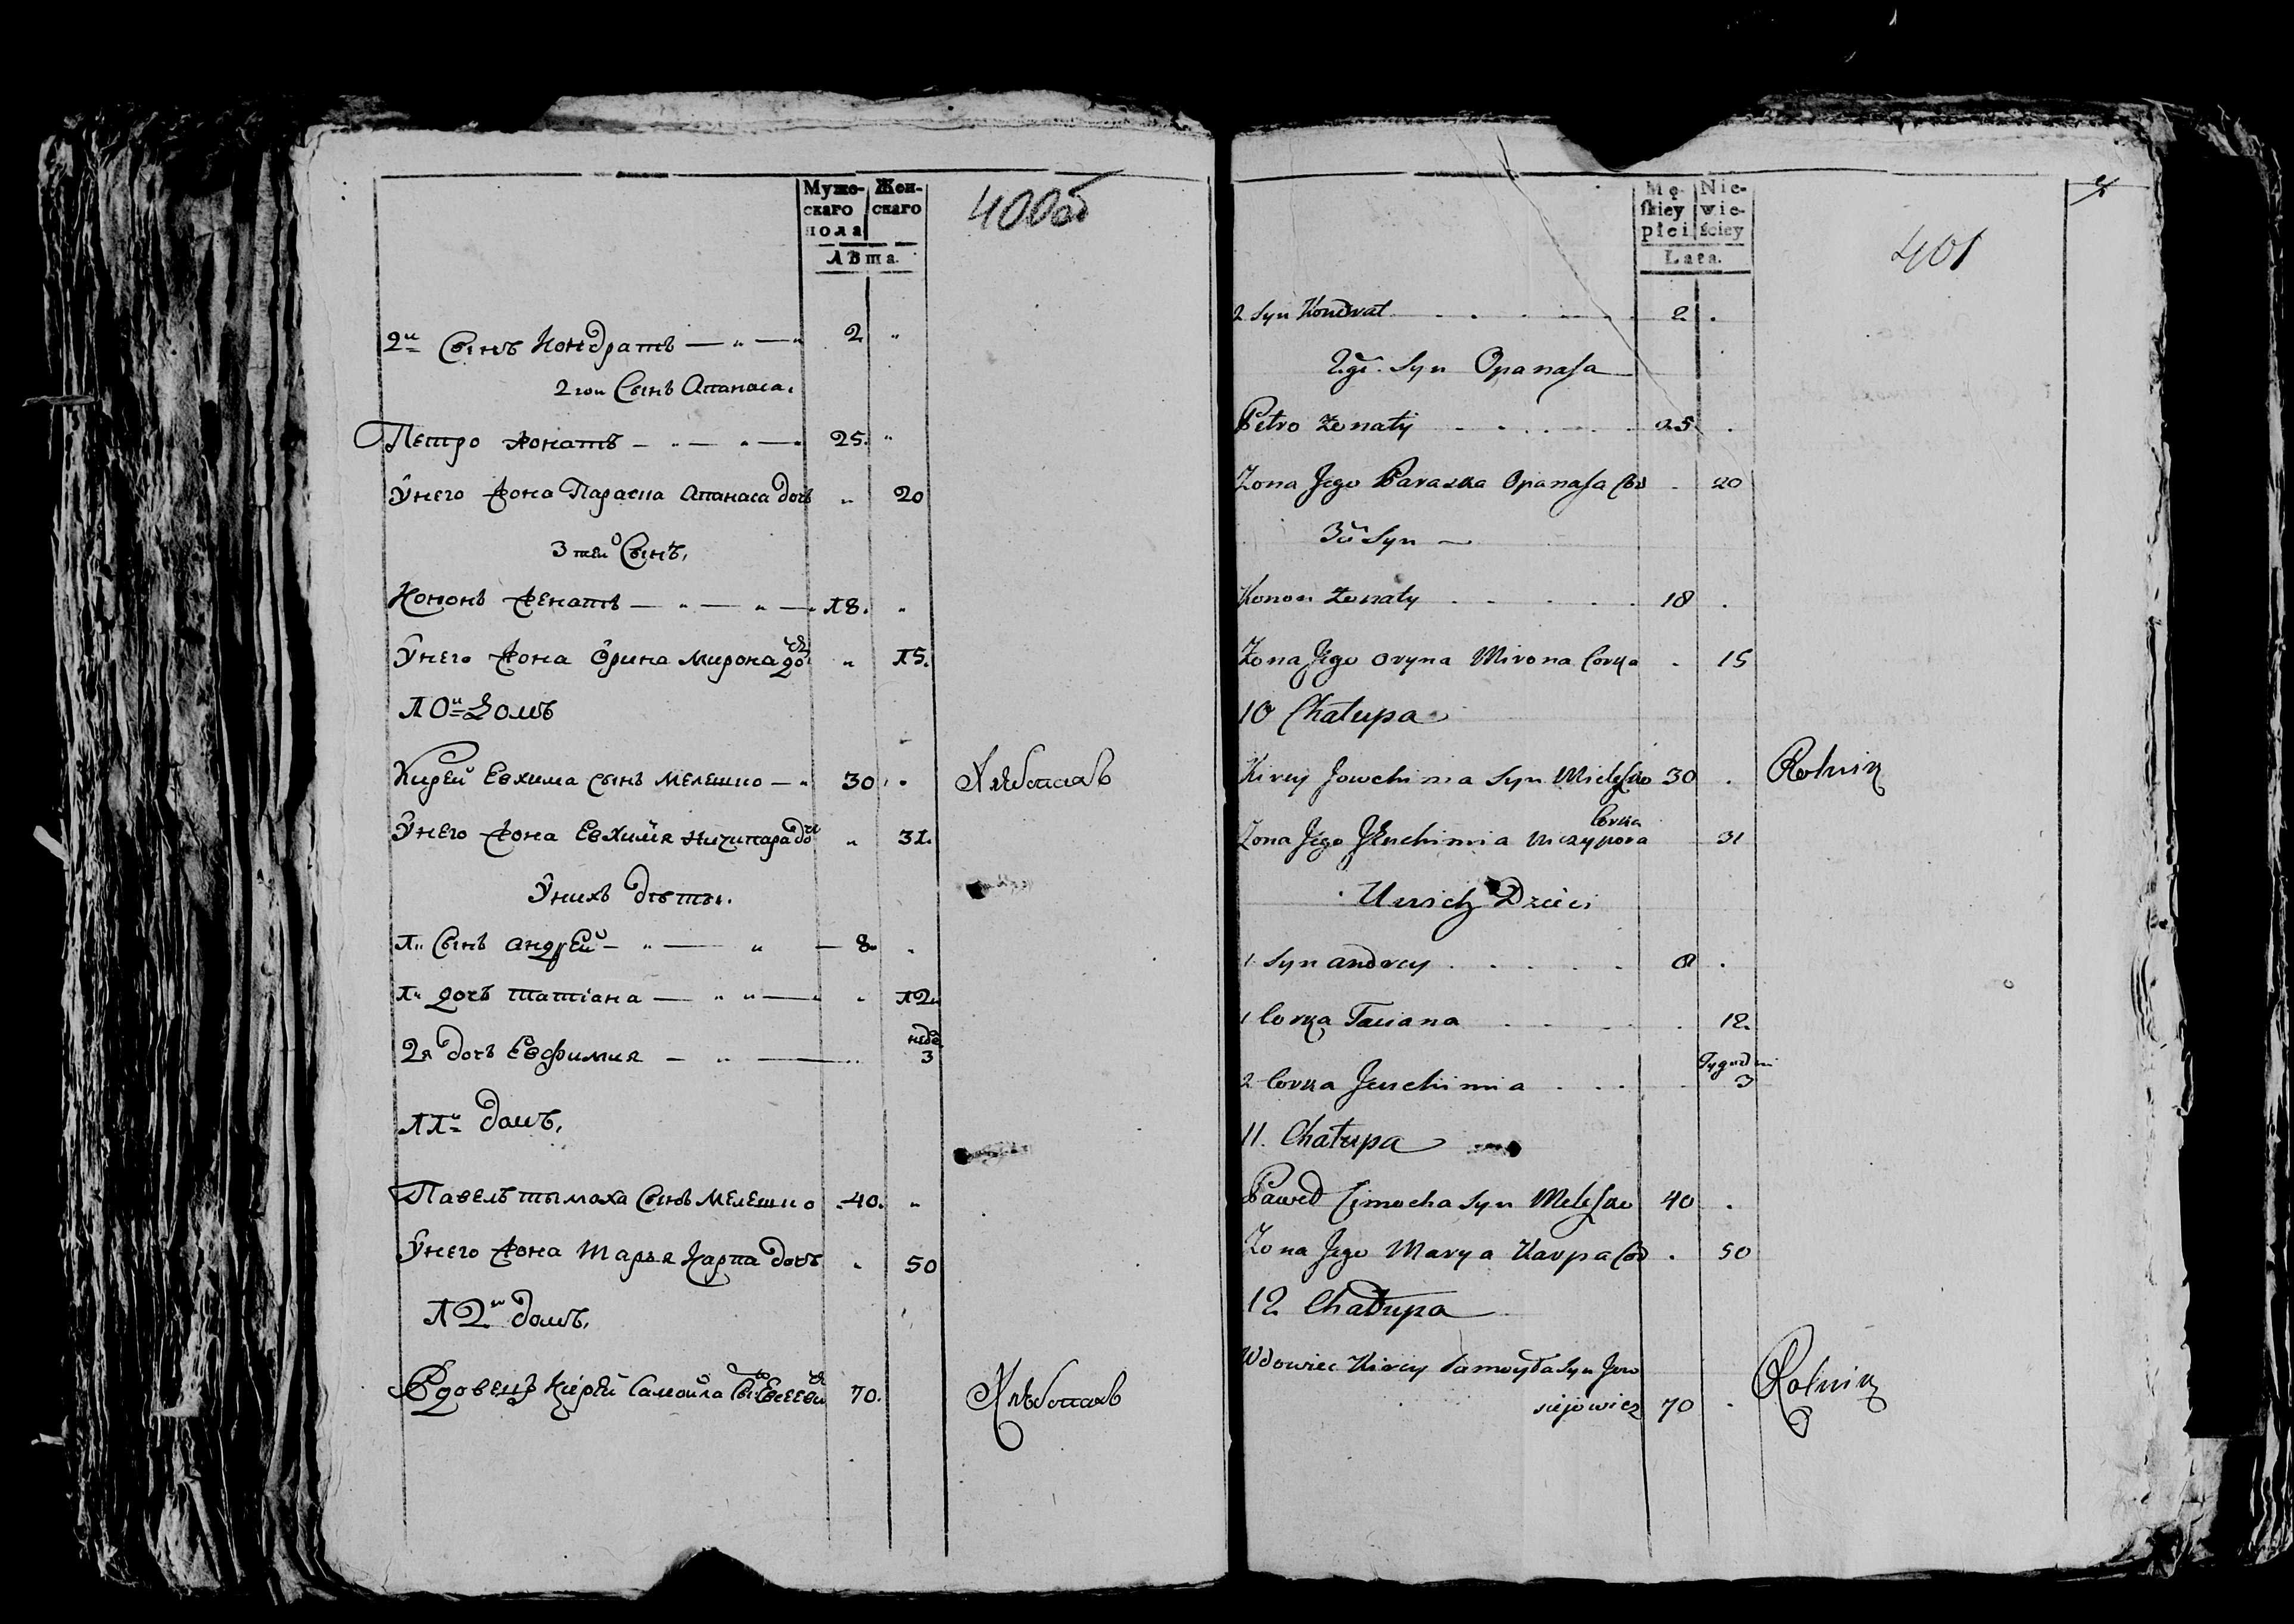 Муже-
скаго
пола
Жен-
скаго
Лѣта.
400об
2й Сынъ Кондратъ — „ — „ 2 „
2гои Сынъ Апанаса.
Петро жонатъ — „ — „ — „ 25. „
Унего жона Параска Апанаса дочь „ 20
3тей Сынъ,
Кононъ женатъ — „ — „ — 18. „
Унего жона Орина Мирона до „ 15.
10й Домъ
Кирей Евхима сынъ Мелешко — „ 30 „ Хлѣбопашъ
Унего жона Евхимія Ничипара до „ 31.
Унихъ дѣти.
1й Сынъ андрей — „ — „ — 8 „
1я дочь татіана — „ „ — „ „ 12
2я дочь Евфимия — „ — неде. 3
11й домъ,
Павелъ тымоха Сынъ Мелешко 40. „
Унего жона Марья Карпа дочь „ 50
12й домъ,
Вдовецъ Кирей Самойла 70. Хлѣбопашъ
Mę-
skiey
płci
Nie-
wie-
ściey
Lata.
401
2 Syn Kondrat . . . . 2 .
2gi. Syn Opanasa
Petro Żonaty . . . . . 25 .
Żona Jego Paraska Opanasa Cór . 20
3ci Syn —
Konon Żonaty . . . . . 18 .
Żona Jego Oryna Mirona Corka . 15
10 Chałupa
Kirey Jowchima Syn Mieleszko 30 . Rolnik
Corka
Żona Jego Jewchimia Niczypora 31
Unich Dzieci
1 Syn andrey . . . . . 8 .
1 Corka Taciana . . . . . 12.
Tygodni
2 Corka Jewchimia . . . . 3
11. Chałupa
Paweł Cimocha Syn Meleszko 40 .
Żona Jego Marya Karpa Cór . 50
12 Chałupa
Wdowiec Kirey Samoyła Syn Jew
siejowicz 70 . Rolnik